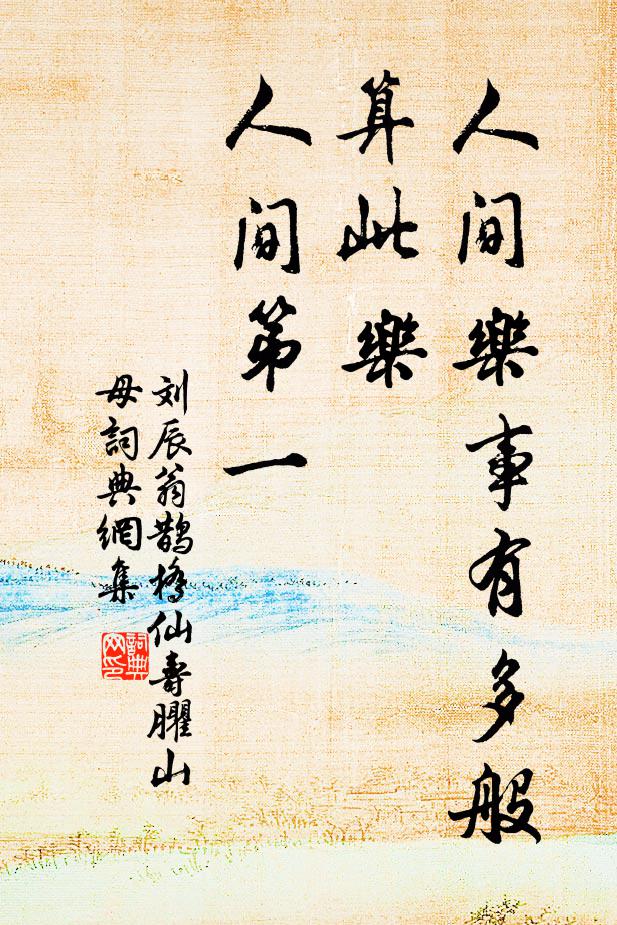 人间樂事有多般
算此樂
人间第一
刘辰翁鹊桥仙寿臞山
母詞典網集
詞典
网印